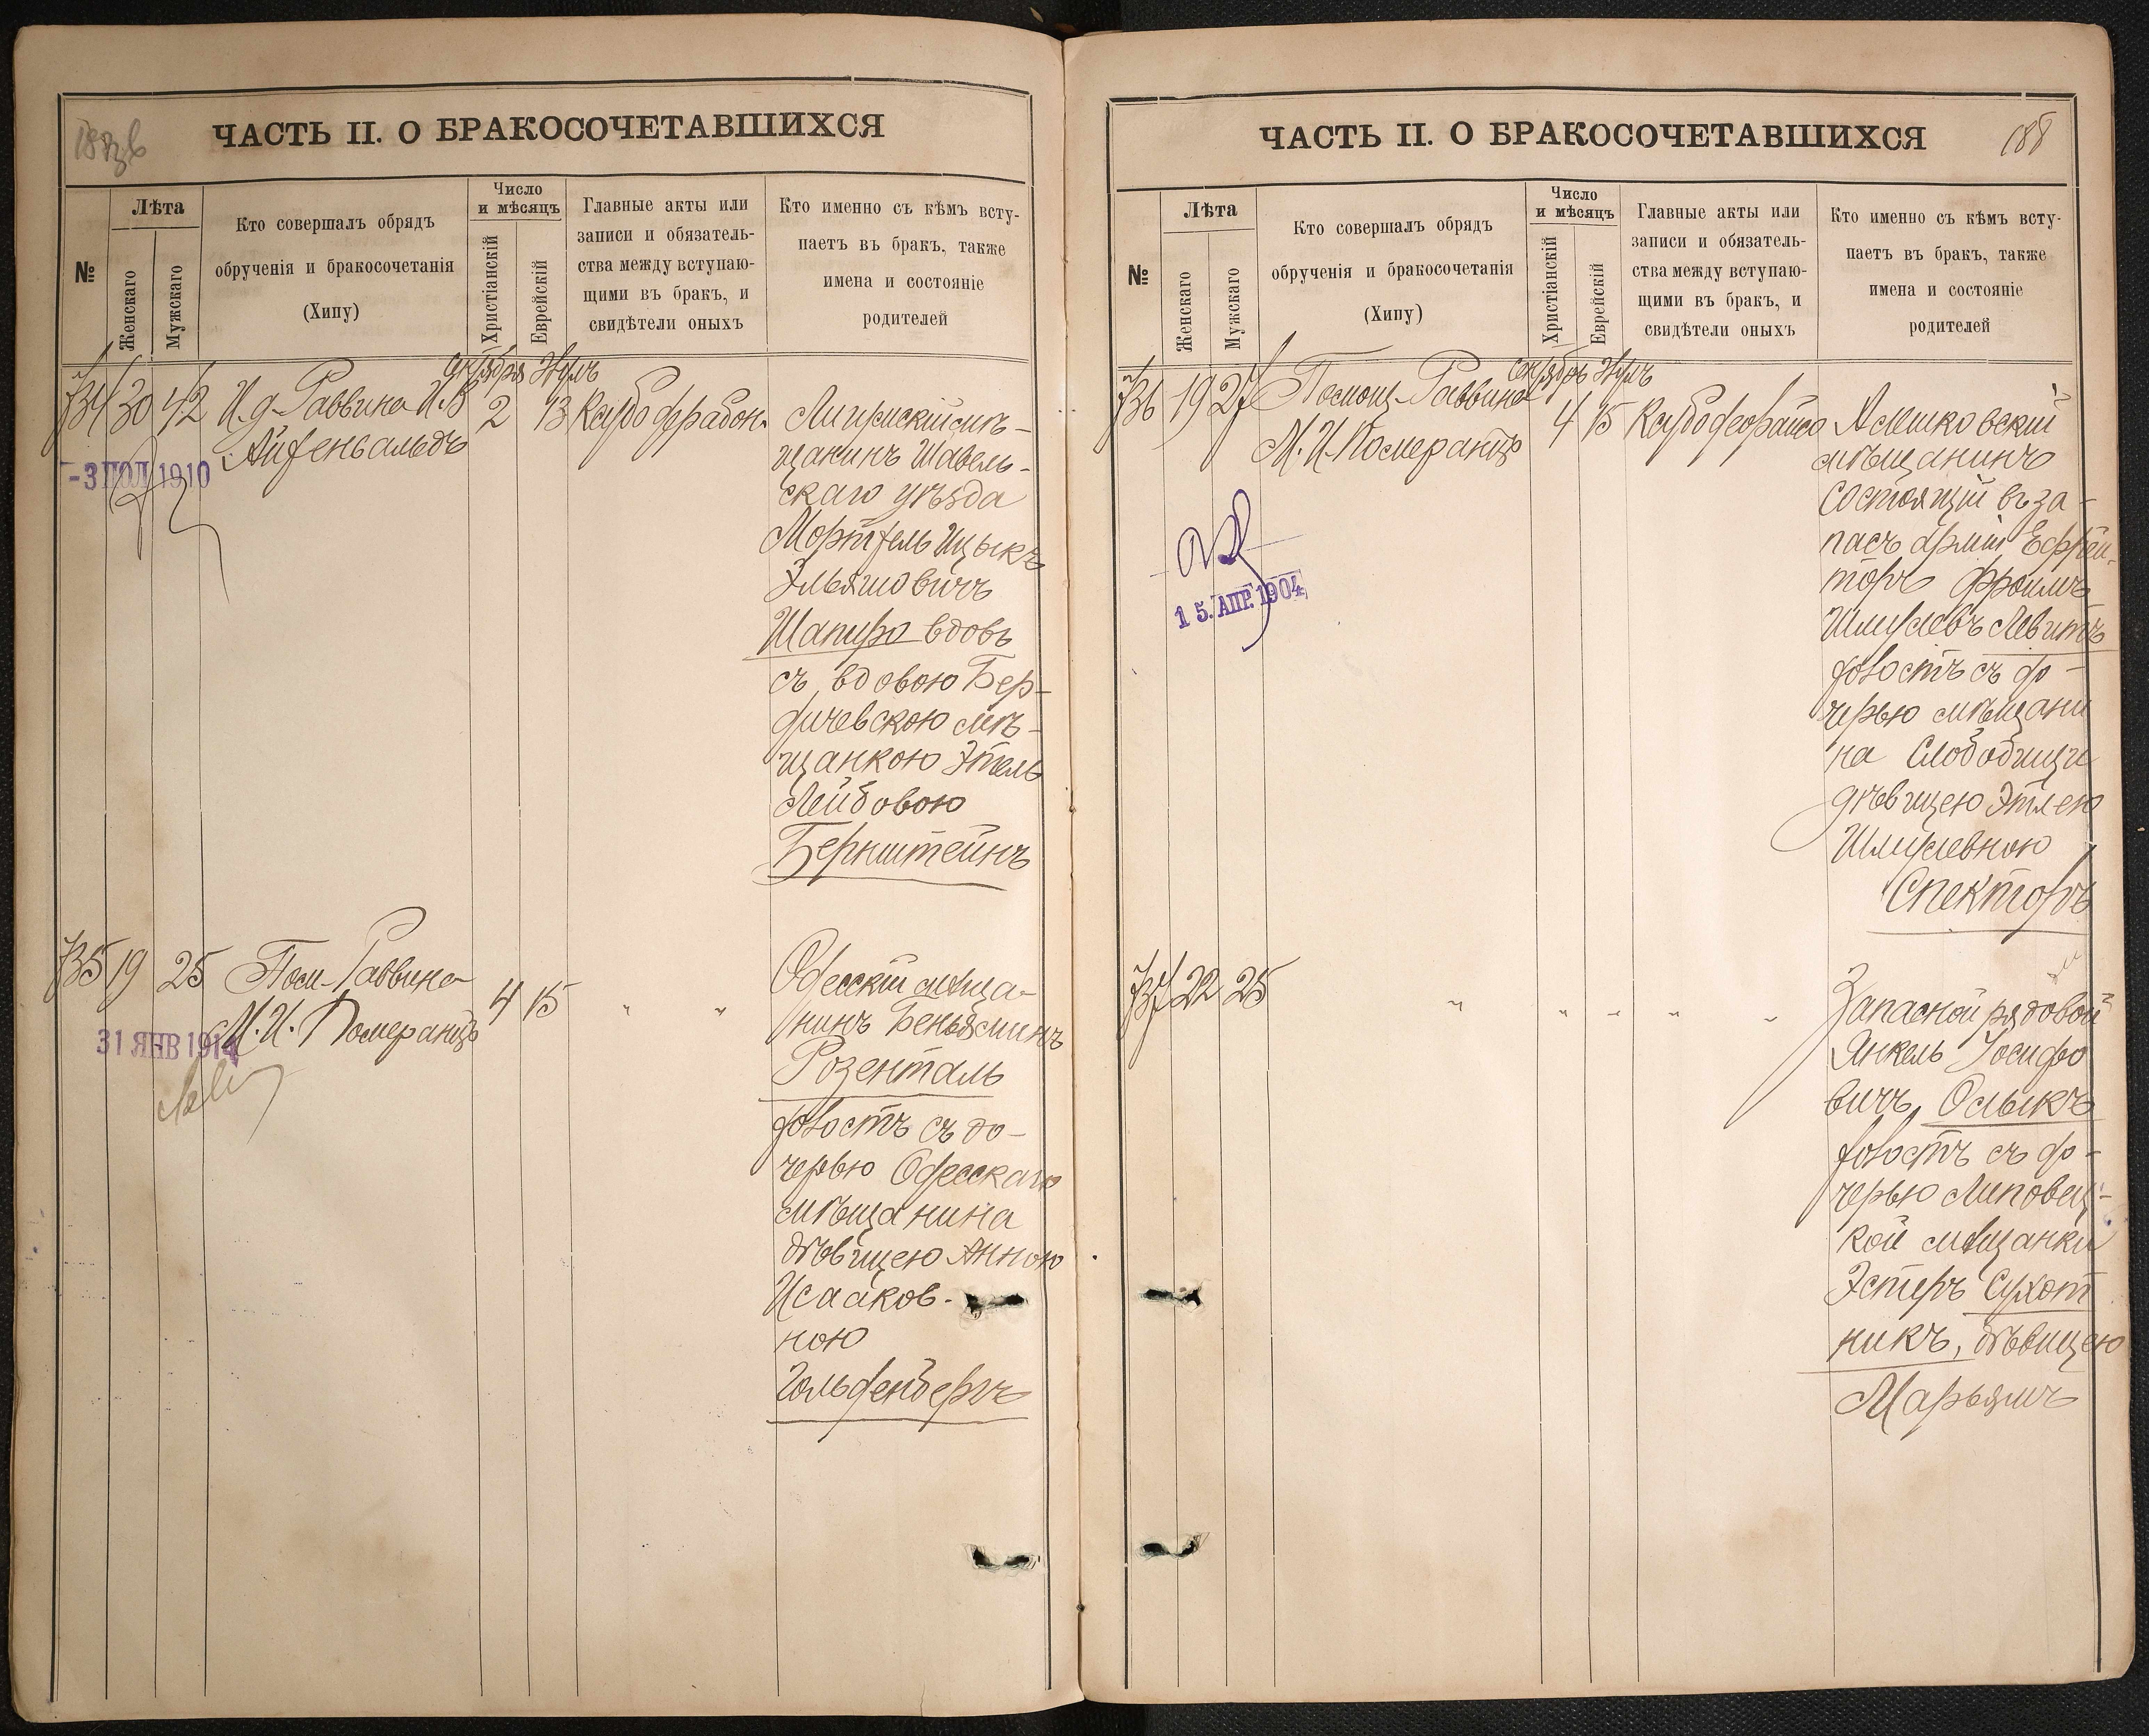 ЧАСТЬ II. О БРАКОСОЧЕТАВШИХСЯ
№
Лѣта
Женскаго
Мужскаго
Кто совершалъ обрядъ
обрученія и бракосочетанія
(Хипу)
Число
и мѣсяцъ
Христіанскій
Еврейскій
Главные акты или
записи и обязатель-
ства между вступаю-
щими въ бракъ, и
свидѣтели оныхъ
Кто именно съ кѣмъ всту-
паетъ въ бракъ, также
имена и состояніе
родителей
734 30 42 И. д. Раввина И. В.
Айзенвальдъ
2 13
-3 ИЮЛ 1910
мѣ-
щанинъ Шавель-
скаго уѣзда
Ицыкъ
Эльяшовичъ
Шапиро вдовъ
съ вдовою Бер-
дичевскою мѣ-
щанкою Этель
Лейбовою
Бернштейнъ
735 19 25 Пом. Раввина
М. И. Померанцъ
4 15 " "
31 ЯНВ 1914
Одесскій мѣща-
нинъ Беньяминъ
Розенталь
холостъ съ до-
черью Одесскаго
мѣщанина
дѣвицею Анною
Исааков-
ною
Гольденбергъ
ЧАСТЬ II. О БРАКОСОЧЕТАВШИХСЯ
188
№
Лѣта
Женскаго
Мужскаго
Кто совершалъ обрядъ
обрученія и бракосочетанія
(Хипу)
Число
и мѣсяцъ
Христіанскій
Еврейскій
Главные акты или
записи и обязатель-
ства между вступаю-
щими въ бракъ, и
свидѣтели оныхъ
Кто именно съ кѣмъ всту-
паетъ въ бракъ, также
имена и состояніе
родителей
736 19 27 Помощ. Раввина
М. И. Померанцъ
4 15
15. АПР. 1904
мѣщанинъ
состоящій въ за-
пасѣ арміи Ефрей-
торъ Фроимъ
Шмулевъ Левитъ
холостъ съ до-
черью мѣщани
на Слободищи
дѣвицею Этлею
Шмулевною
Спекторъ
737 22 25 " " " " "
Запасной рядовой
Янкель Іосифо
вичъ Олыкъ
холостъ съ до-
черью Липовец-
кой мѣщанки
Эстеръ Сухот
никъ, дѣвицею
Марьямъ